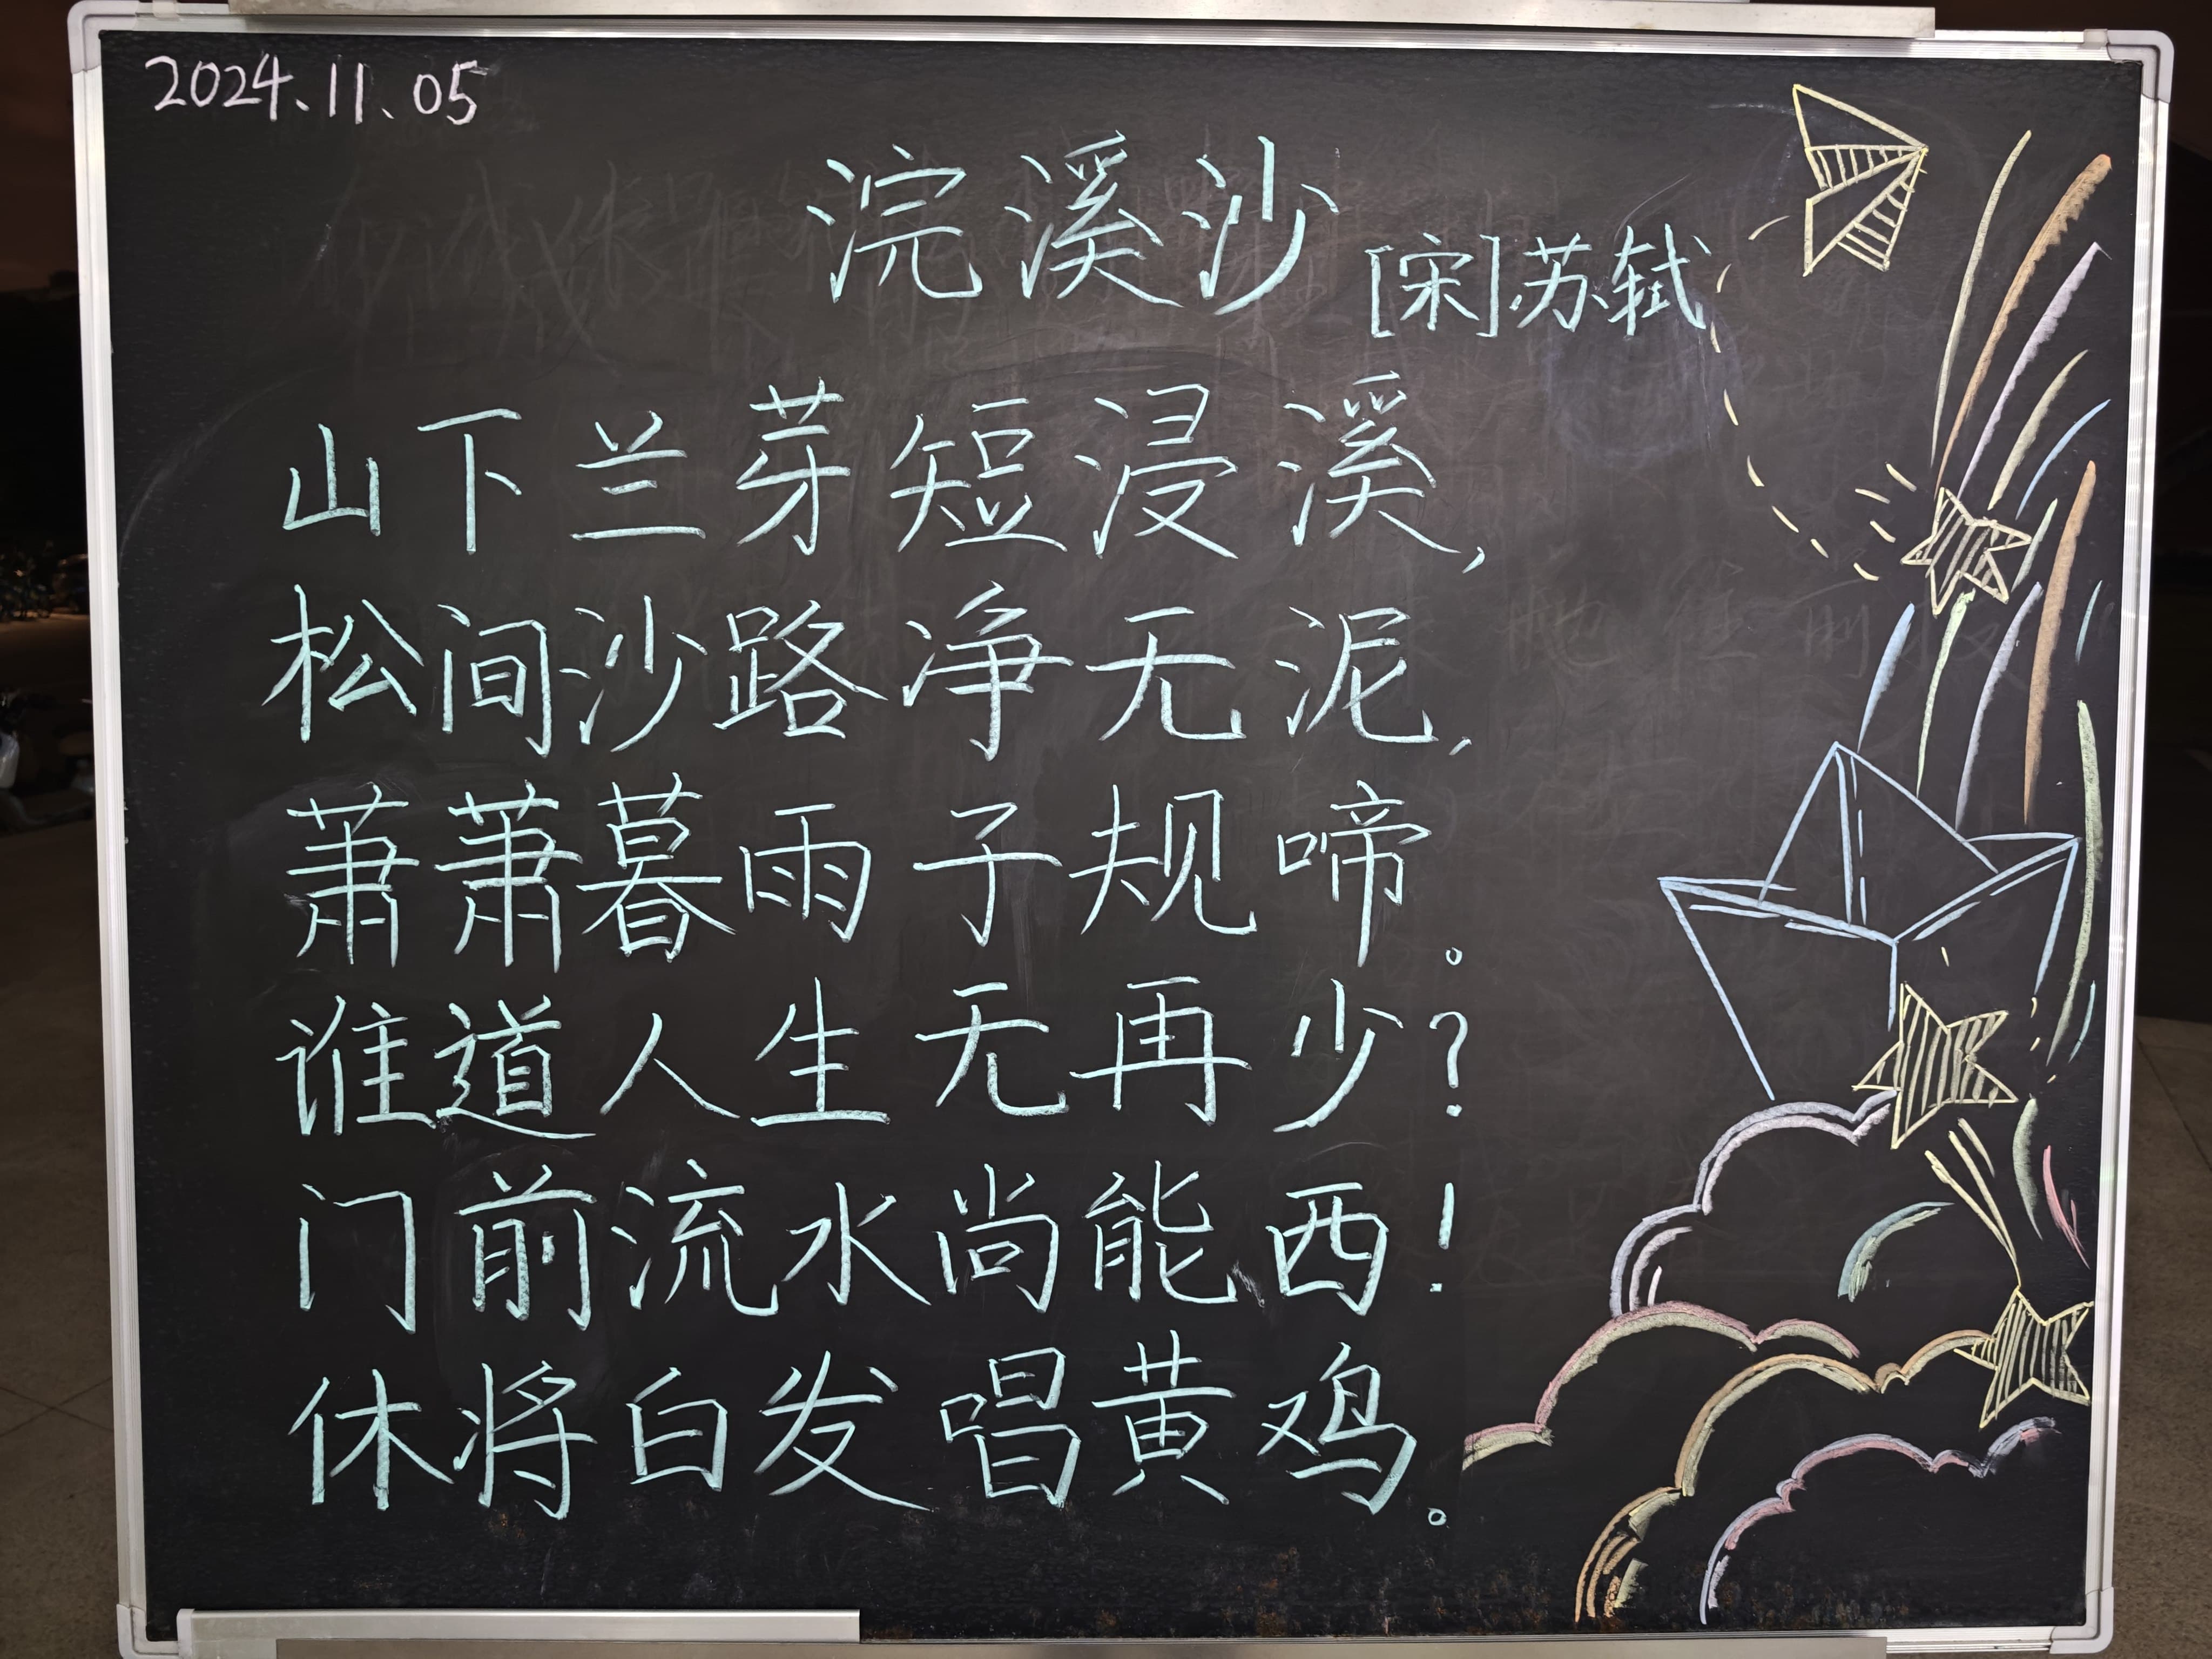 2024.11.05
浣溪沙
[宋]苏轼
山下兰芽短浸溪,
松间沙路净无泥,
萧萧暮雨子规啼。
谁道人生无再少?
门前流水尚能西!
休将白发唱黄鸡。